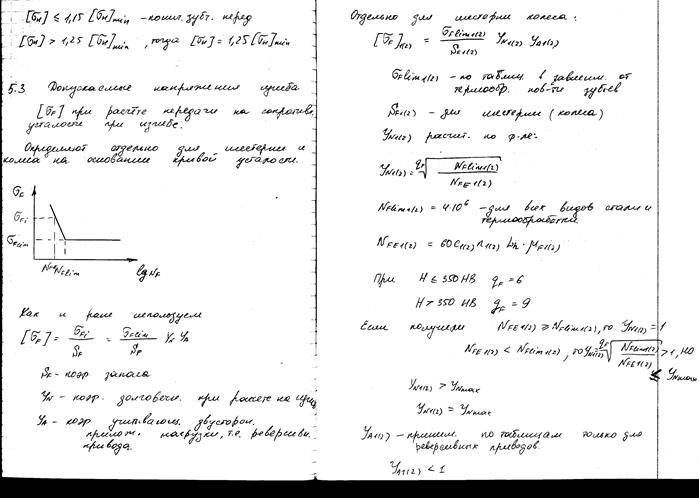 [σн] ≤ 1,15 [σн]min - конич. зубч. перед
[σн] > 1,25 [σн]min, тогда [σн] = 1,25 [σн]min
5.3 Допускаемые напряжения изгиба
[σF] при расчёте передачи на сопротивл.
усталости при изгибе.
Определяют отдельно для шестерни и
колеса на основании кривой усталости.
σF
σFi
σFlim
NFlim
lgNF
Как и ранее используем
[σF] = σFi / SF = σFlim / SF YN YA
SF - коэф. запаса
YN - коэф. долговечн. при расчете на изгиб
YA - коэф. учитывающ. двусторон.
прилож. нагрузки, т.е. реверсивн.
привода.
Отдельно для шестерни колеса:
[σF]1(2) = σFlim1(2) / SF1(2) YN1(2) YA1(2)
σFlim1(2) - по таблиц. в зависим. от
термообр. пов-ти зубьев
SF1(2) - для шестерни (колеса)
YN1(2) расчит. по ф-ле:
YN1(2) = qF√(NFlim1(2) / NFE1(2))
NFlim1(2) = 4·10⁶ - для всех видов стали и
термообработки
NFE1(2) = 60C1(2) n1(2) Lh · μF1(2)
При H ≤ 350 HB qF = 6
H > 350 HB qF = 9
Если получили NFE1(2) ≥ NFlim1(2), то YN1(2) = 1
NFE1(2) < NFlim1(2), то YN1(2) = qF√(NFlim1(2) / NFE1(2)) > 1, но
≤ YNmax
YN1(2) > YNmax
YN1(2) = YNmax
YA1(2) - приним. по таблицам только для
реверсивных приводов.
YA1(2) < 1